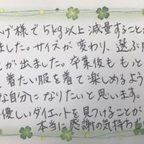 げ様で5kg以上減量すること
ました。サイズが変わり、選ぶ服
が出ました。卒業後ももっと
着たい服を着て楽しめるよう
な自分になりたいと思います。
優しいダイエットを見つけることが
本当に感謝の気持ち